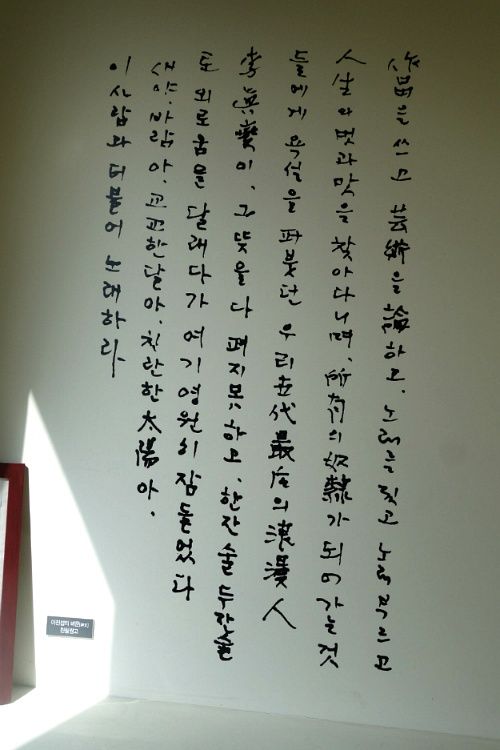 作品을 쓰고 芸術을 論하고, 노래를 짓고 노래 부르고
人生의 멋과 맛을 찾아다니며, 所有의 奴隸가 되어 가는 것
들에게 욕설을 퍼붓던 우리 世代 最后의 浪漫人
李眞燮이, 그 뜻을 다 펴지 못하고, 한잔 술 두잔 술
로 외로움을 달래다가 여기 영원히 잠들었다
새야, 바람아, 교교한 달아, 찬란한 太陽아.
이 사람과 더불어 노래하라
이진섭의 비문(碑文)
친필원고